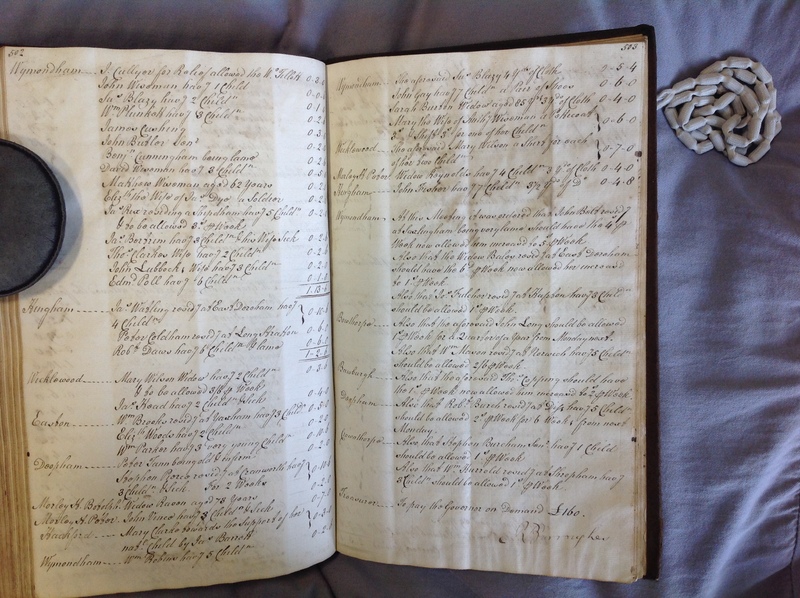 502
Wymondham J. Cullyer for Relief allowed the Wm. Filletts 0-2-
John Wiseman hav7 1 Child 0-0-
Jas. Blazy hav7 2 Childn. 0-1-
Wm. Plunkett hav7 3 Childn. 0-2-
James Cushing 0-3-
John Butler Senr. 0-2-
Benj. Cunningham being lame 0-2-
David Wiseman hav7 8 Childn. 0-3-
Matthew Wiseman aged 62 Years 0-2-
Eliz. the Wife of Jas. Dye a Soldier 0-2-
to be allowed 3s. ⅌ Week
Jas. Borrett hav7 3 Childn. & his Wife Sick 0-2-
Thos. Clarkes Wife hav7 2 Childn. 0-2-
John Lubbock's Wife hav7 3 Childn. 0-2-
Edmd. Poll hav7 6 Childn. 0-1-
1-13-
Hingham Jas. Watling resid7 at East Dereham hav7
4 Childn. 0-10-6
Peter Coldham resid7 at Long Stratton 0-6-0
Robt. Daws hav7 6 Childn. & lame 0-6-
1-2-6
Wicklewood Mary Wilson Widow hav7 2 Childn. 0-3-
to be allowed 3s/6 ⅌ Week
Jas. Head hav7 2 Childn. Sick 0-4-0
Easton Wm. Brooks resid7 at Yaxham hav7 3 Childn. 0-5-0
Eliz. Woods hav7 2 Childn. 0-2-0
Wm. Parker hav7 3 very young Childn. 0-10-
Deopham Peter Lunn being old & infirm 0-2-0
Stephen resid7 at Cranworth hav7
3 Childn. & Sick. For 2 Weeks 0-10-
Morley St. Botolph Widow Raven aged 78 Years 0-2-
Morley St. Peter John hav7 3 Childn. & Sick 0-7-
Hackford Mary Clarke towards the Support of her
natl. Child by Jas. Barrett 0-3-
Wymondham Wm. Robins hav7 5 Childn. 0-2-
503
Wymondham The aforesaid Jas. Blazy 4 Yds. of Cloth 0-5-4
John Gay hav7 7 Childn. a Pair of Shoes 0-6-0
Sarah Burton Widow aged 85 Yrs. 3 Yds. of Cloth 0-4-0
Mary the Wife of Anthy. Wiseman a Petticoat
& a Shift for one of her Childn. 0-6-0
Wicklewood The aforesaid Mary Wilson a Shirt for each
of her two Childn. 0-7-0
Morley St. Peter Widow Reynolds hav7 4 Childn. 3 Yds. of Cloth 0-4-0
Hingham John Fisher hav7 7 Childn. 3½ Yds. of Do. 0-4-8
Wymondham At this Meeting it was ordered that John Butt resid7
at Saxlingham being very lame should have the 4s. ⅌
Week now allowed him increased to 5s. ⅌ Week
Also that the Widow Bailey resid7 at East Dereham
should have the 6d. ⅌ Week now allowed her increased
to 1s. ⅌ Week
Also that Jas. Fulcher resid7 at Shipham hav7 5 Childn.
should be allowed 1s. ⅌ Week
Bunthorpe Also that the aforesaid John Long should be allowed
1s. ⅌ Week for 2 Quarters of a Year from Monday next
Also that Wm. Mason resid7 at Norwich hav7 5 Childn.
should be allowed 2s/6 ⅌ Week
Bawburgh Also that the aforesaid Thos. should have
the 1s. ⅌ Week now allowed him increased to 2s. ⅌ Week
Deopham Also that Robt. Burch resid7 at Diss hav7 5 Childn.
should be allowed 2s. ⅌ Week for 6 Weeks from next
Monday
Also that Stephen Barcham Senr. hav7 1 Child
should be allowed 1s. ⅌ Week
Also that Wm. Harrold resid7 at Shropham hav7
3 Childn. should be allowed 1s. ⅌ Week
Treasurer To pay the Governor on Demand £160.
R. Burroughes